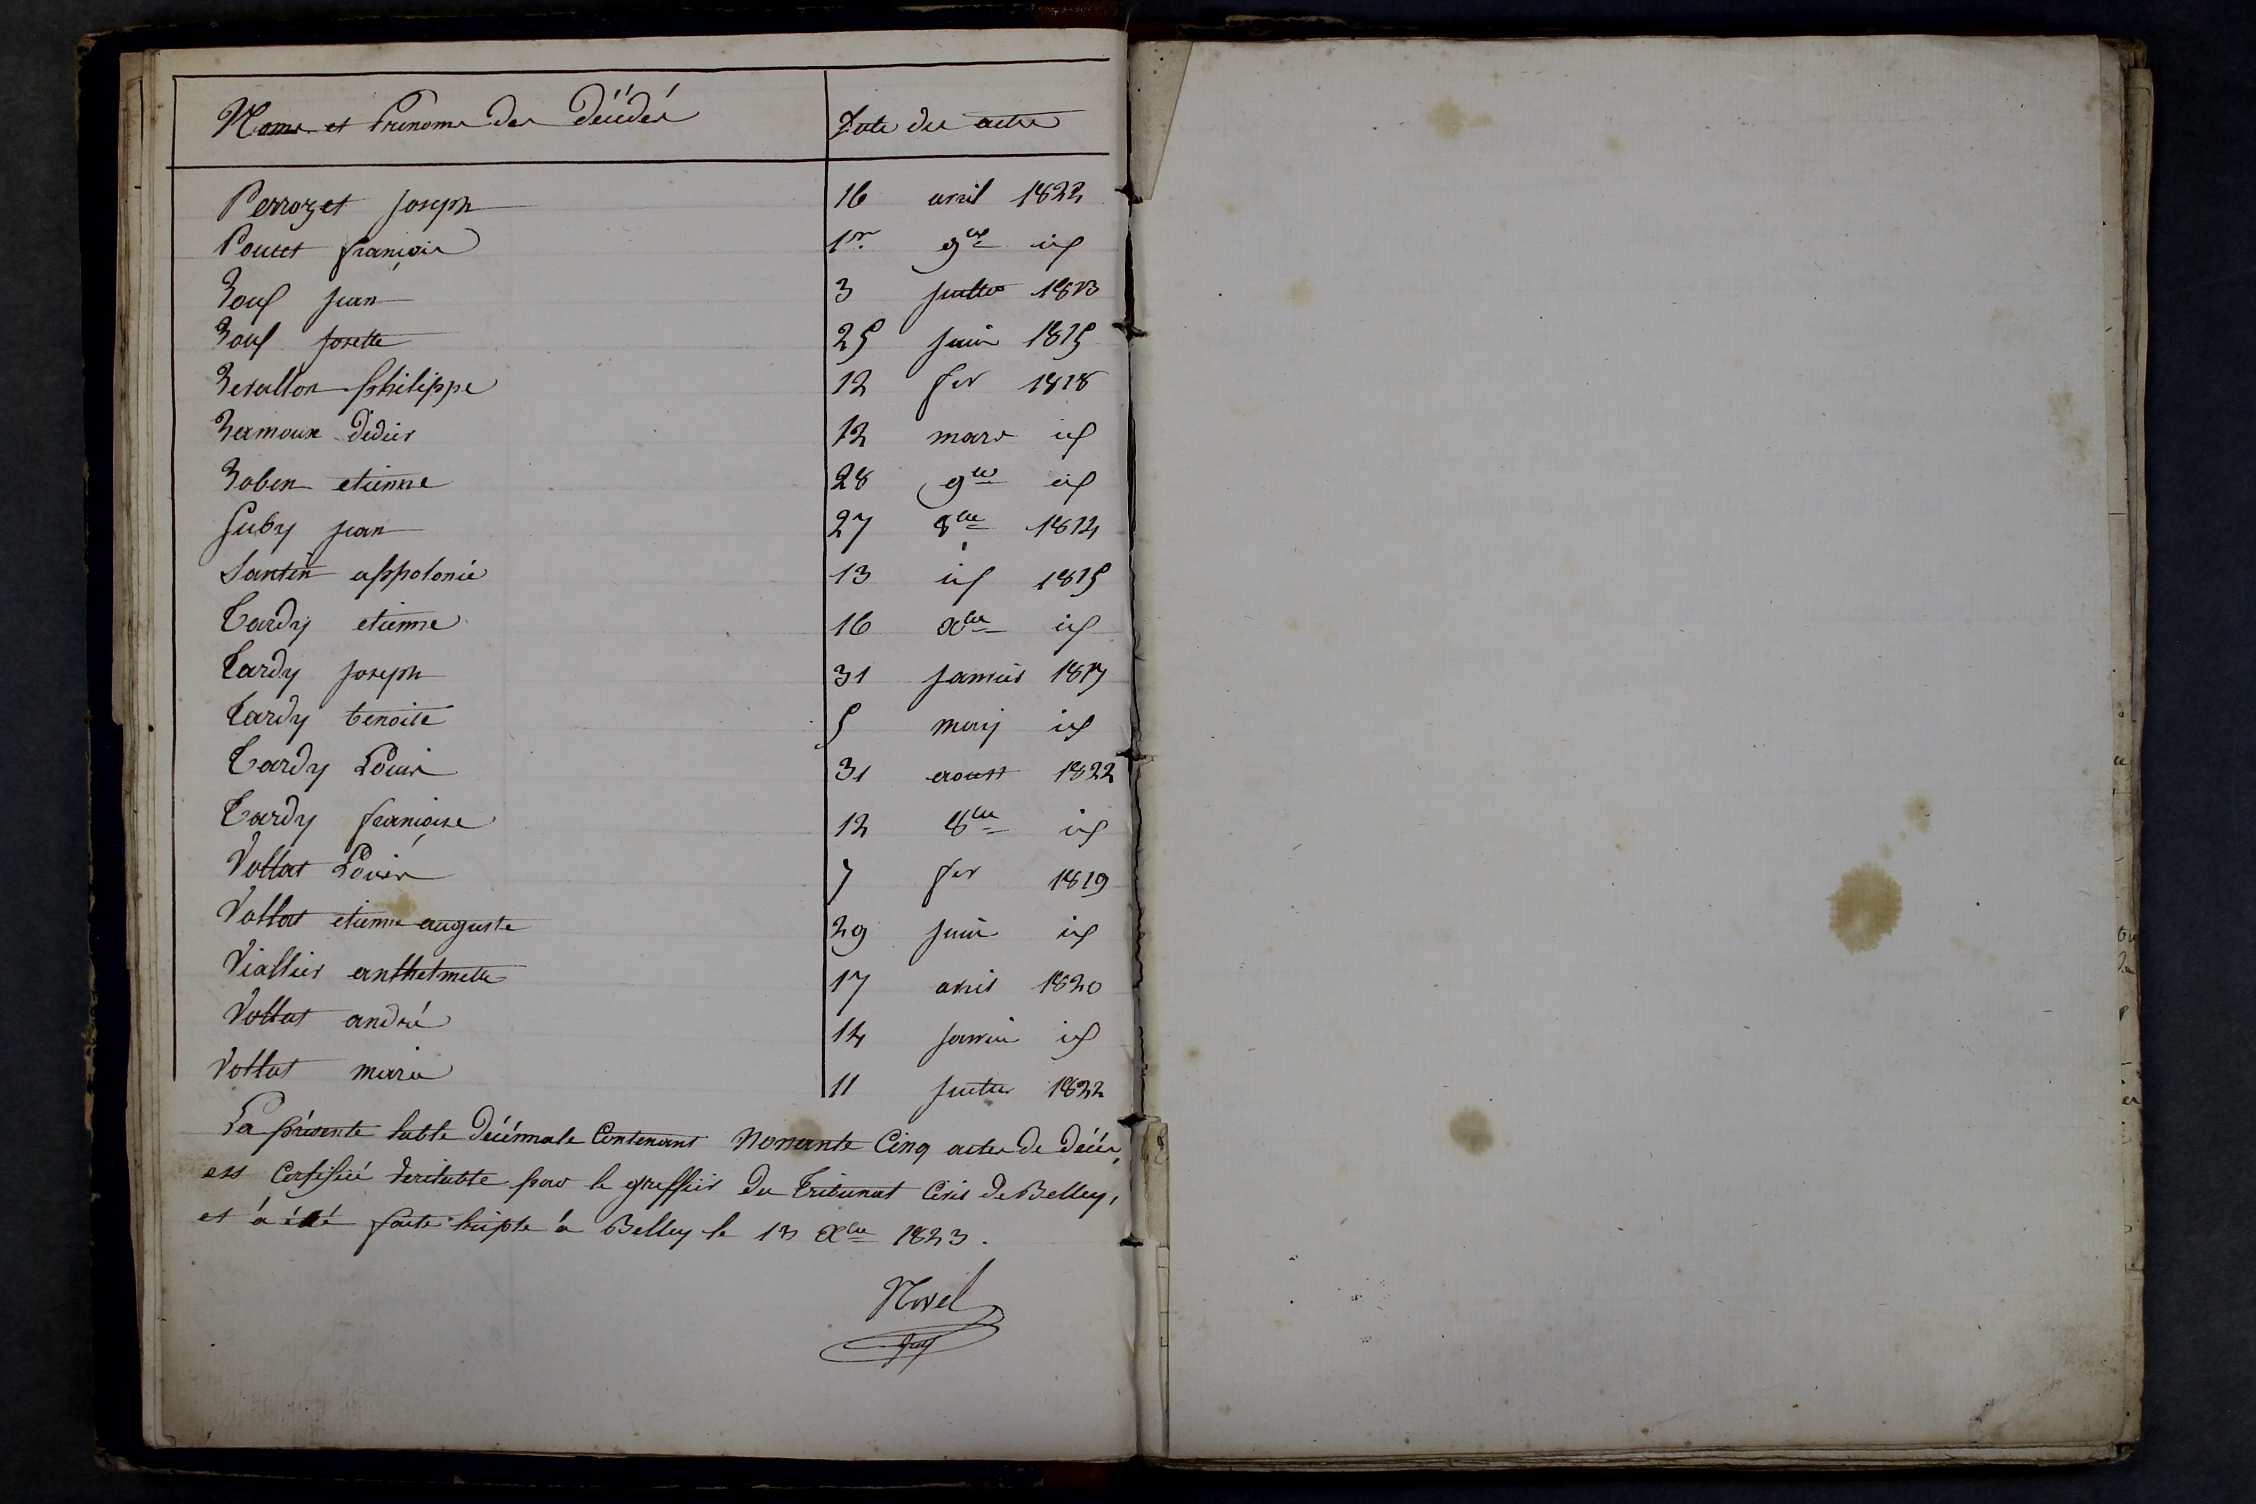 Noms et Prénoms des Décédés Date des actes
Perrozet joseph 16 avril 1822
Poncet françois 1er 9bre id
Roux jean 3 juillet 1813
Roux josette 25 juin 1815
Revallon philippe 12 fer 1818
Ramoux Didier 12 mars id
Robin etienne 28 9bre id
Suby jean 27 8bre 1814
Santin appolonie 13 id 1815
Tardy etienne 16 Xbre id
Tardy joseph 31 janvier 1817
Tardy benoite 5 may id
Tardy Louis 31 aoust 1822
Tardy françoise 12 8bre id
Vottat Louis 7 fer 1819
Vottat etienne auguste 29 juin id
Viallier anthelmette 17 avril 1820
Vottat andré 14 janvier id
Vottat marie 11 juillet 1822
La présente table Décénnale Contenant Nonante Cinq actes de décès,
est Certifiée Veritable par le greffier du Tribunal Civil de Belley,
et à été faite triple à Belley le 13 Xbre 1823.
Novel